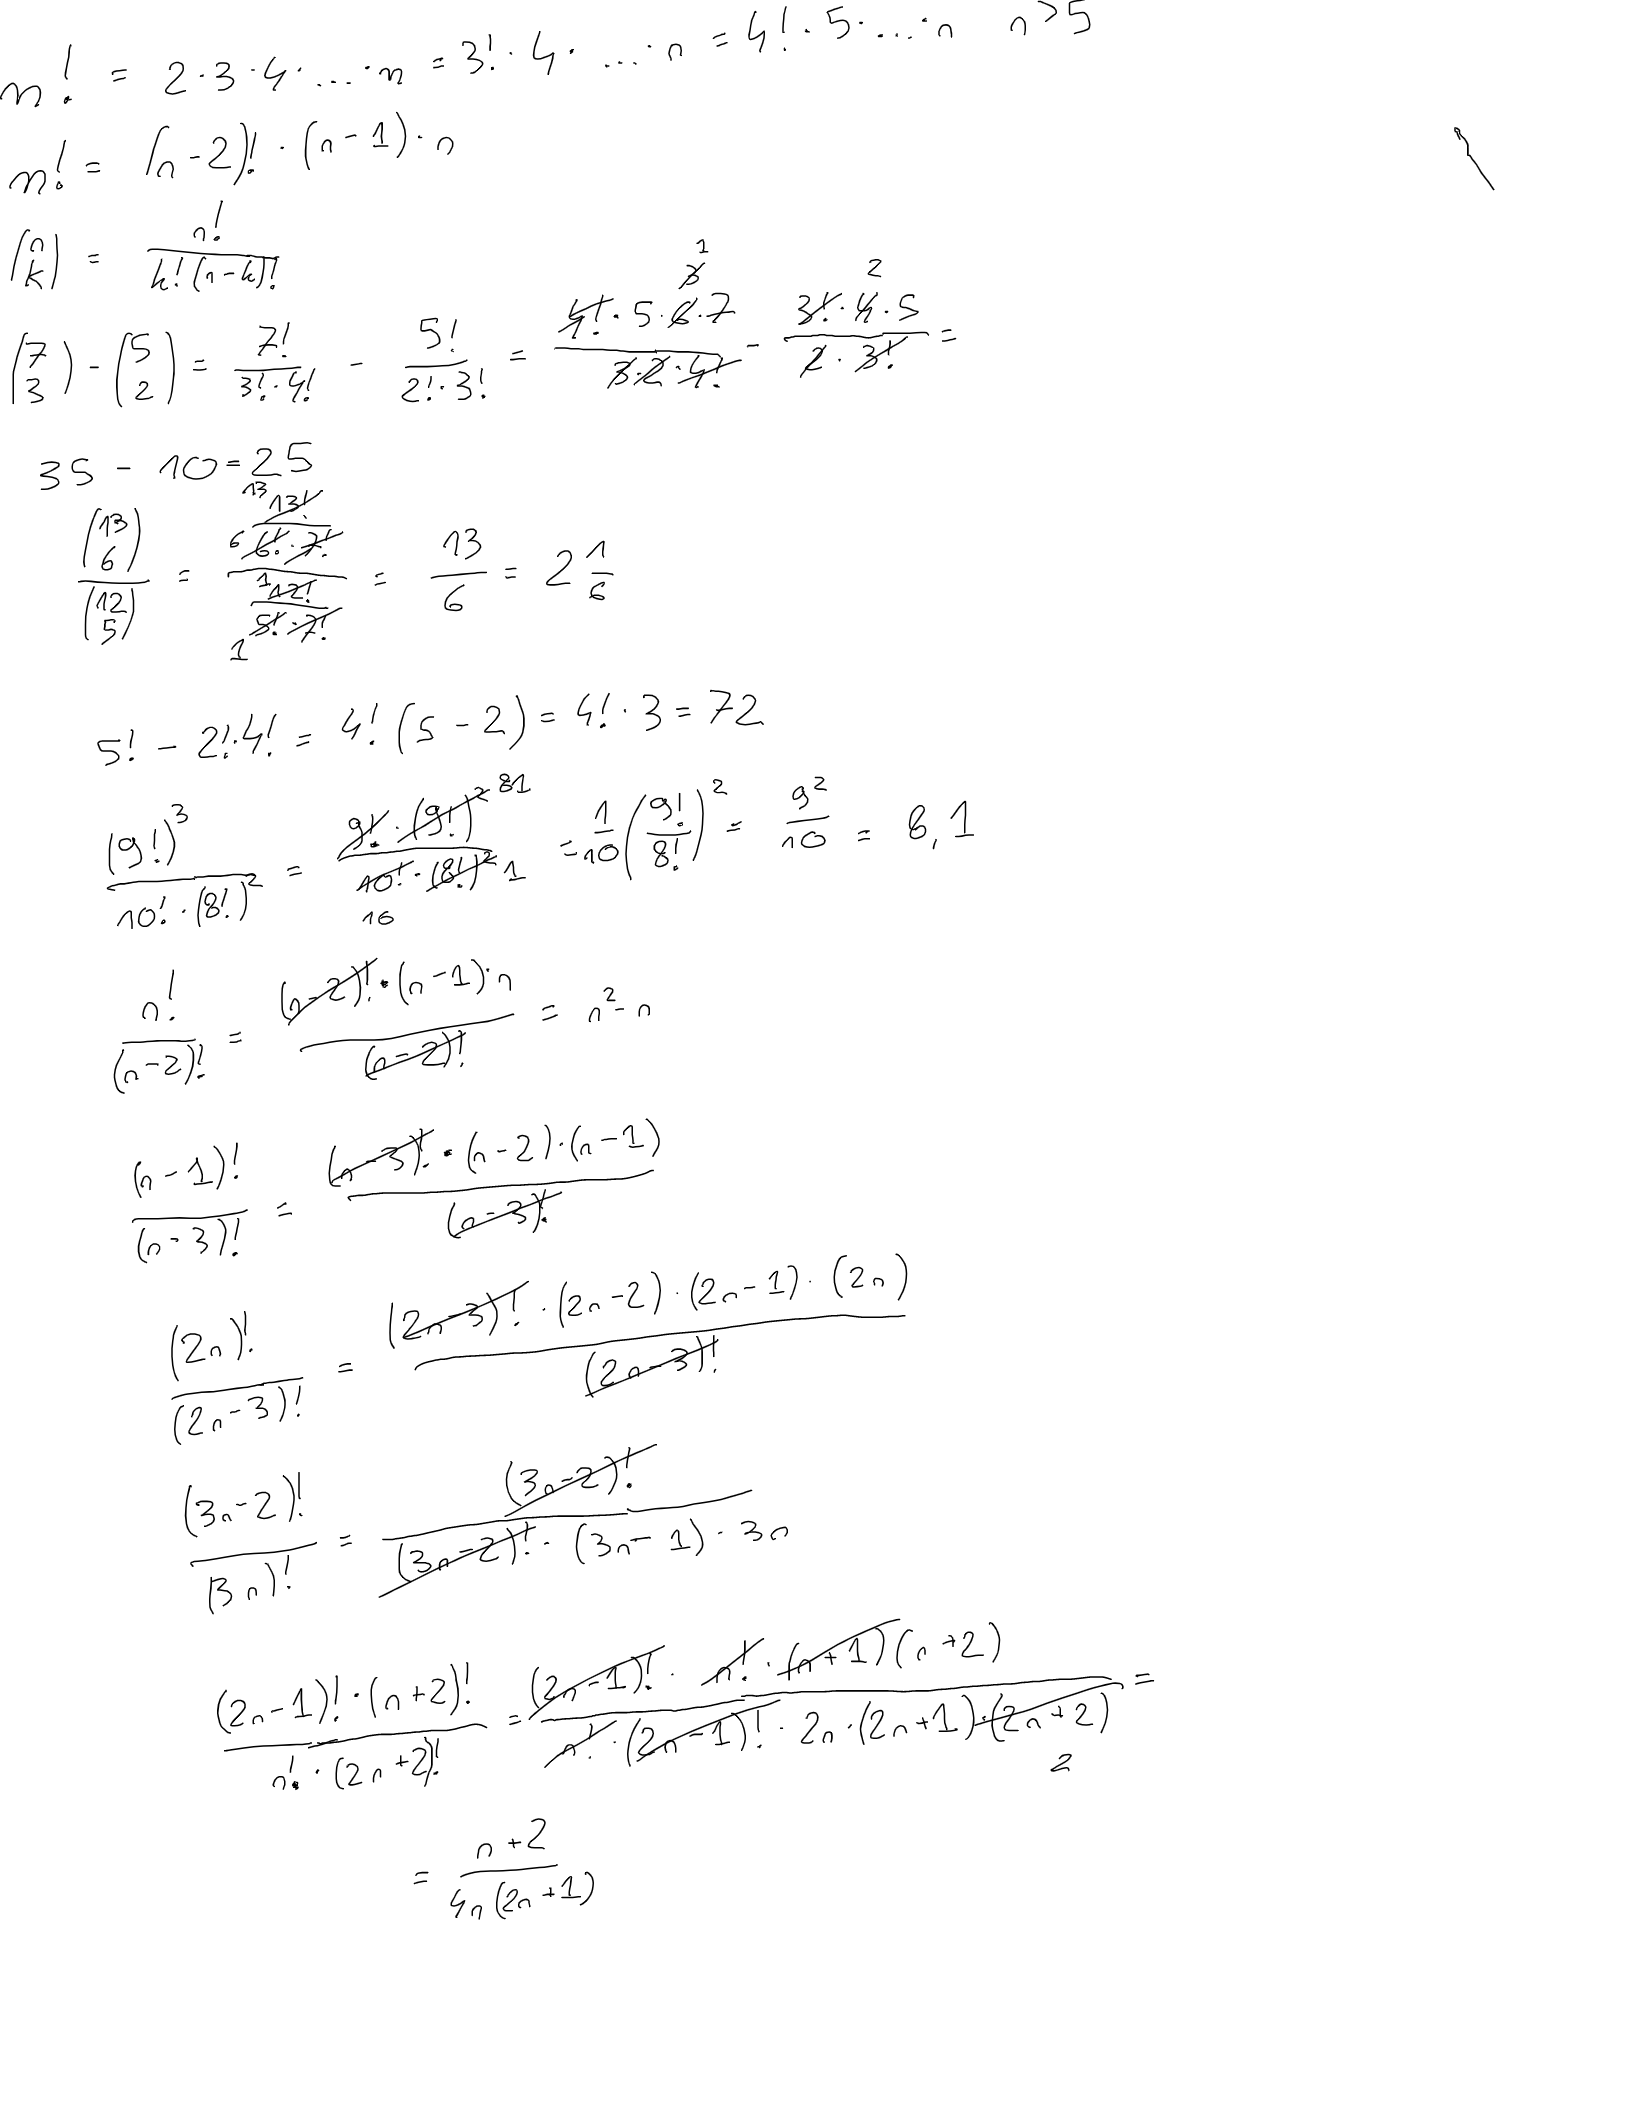 n! = 2·3·4·...·n = 3!·4·...·n = 4!·5·...·n n>5
n! = (n-2)!·(n-1)·n
(n k) = n!/(k!(n-k)!)
(7 3) - (5 2) = 7!/(3!·4!) - 5!/(2!·3!) = (4!·5·6·7)/(3·2·4!) - (3!·4·5)/(2·3!) = 3 1 2
35 - 10 = 25
(13 6)/(12 5) = (13!/(6!·7!))/(12!/(5!·7!)) = 13/6 = 2 1/6 13 6 1 1
5! - 2!·4! = 4!(5-2) = 4!·3 = 72
(9!)³/(10!·(8!)²) = (9!·(9!)²)/(10!·(8!)²) = 1/10 (9!/8!)² = 9²/10 = 8,1 81 1 10
n!/(n-2)! = ((n-2)!·(n-1)·n)/(n-2)! = n²-n
(n-1)!/(n-3)! = ((n-3)!·(n-2)·(n-1))/(n-3)!
(2n)!/(2n-3)! = ((2n-3)!·(2n-2)·(2n-1)·(2n))/(2n-3)!
(3n-2)!/(3n)! = (3n-2)!/((3n-2)!·(3n-1)·3n)
((2n-1)!·(n+2)!)/(n!·(2n+2)!) = ((2n-1)!·n!·(n+1)(n+2))/(n!·(2n-1)!·2n·(2n+1)·(2n+2)) = 2
= (n+2)/(4n(2n+1))